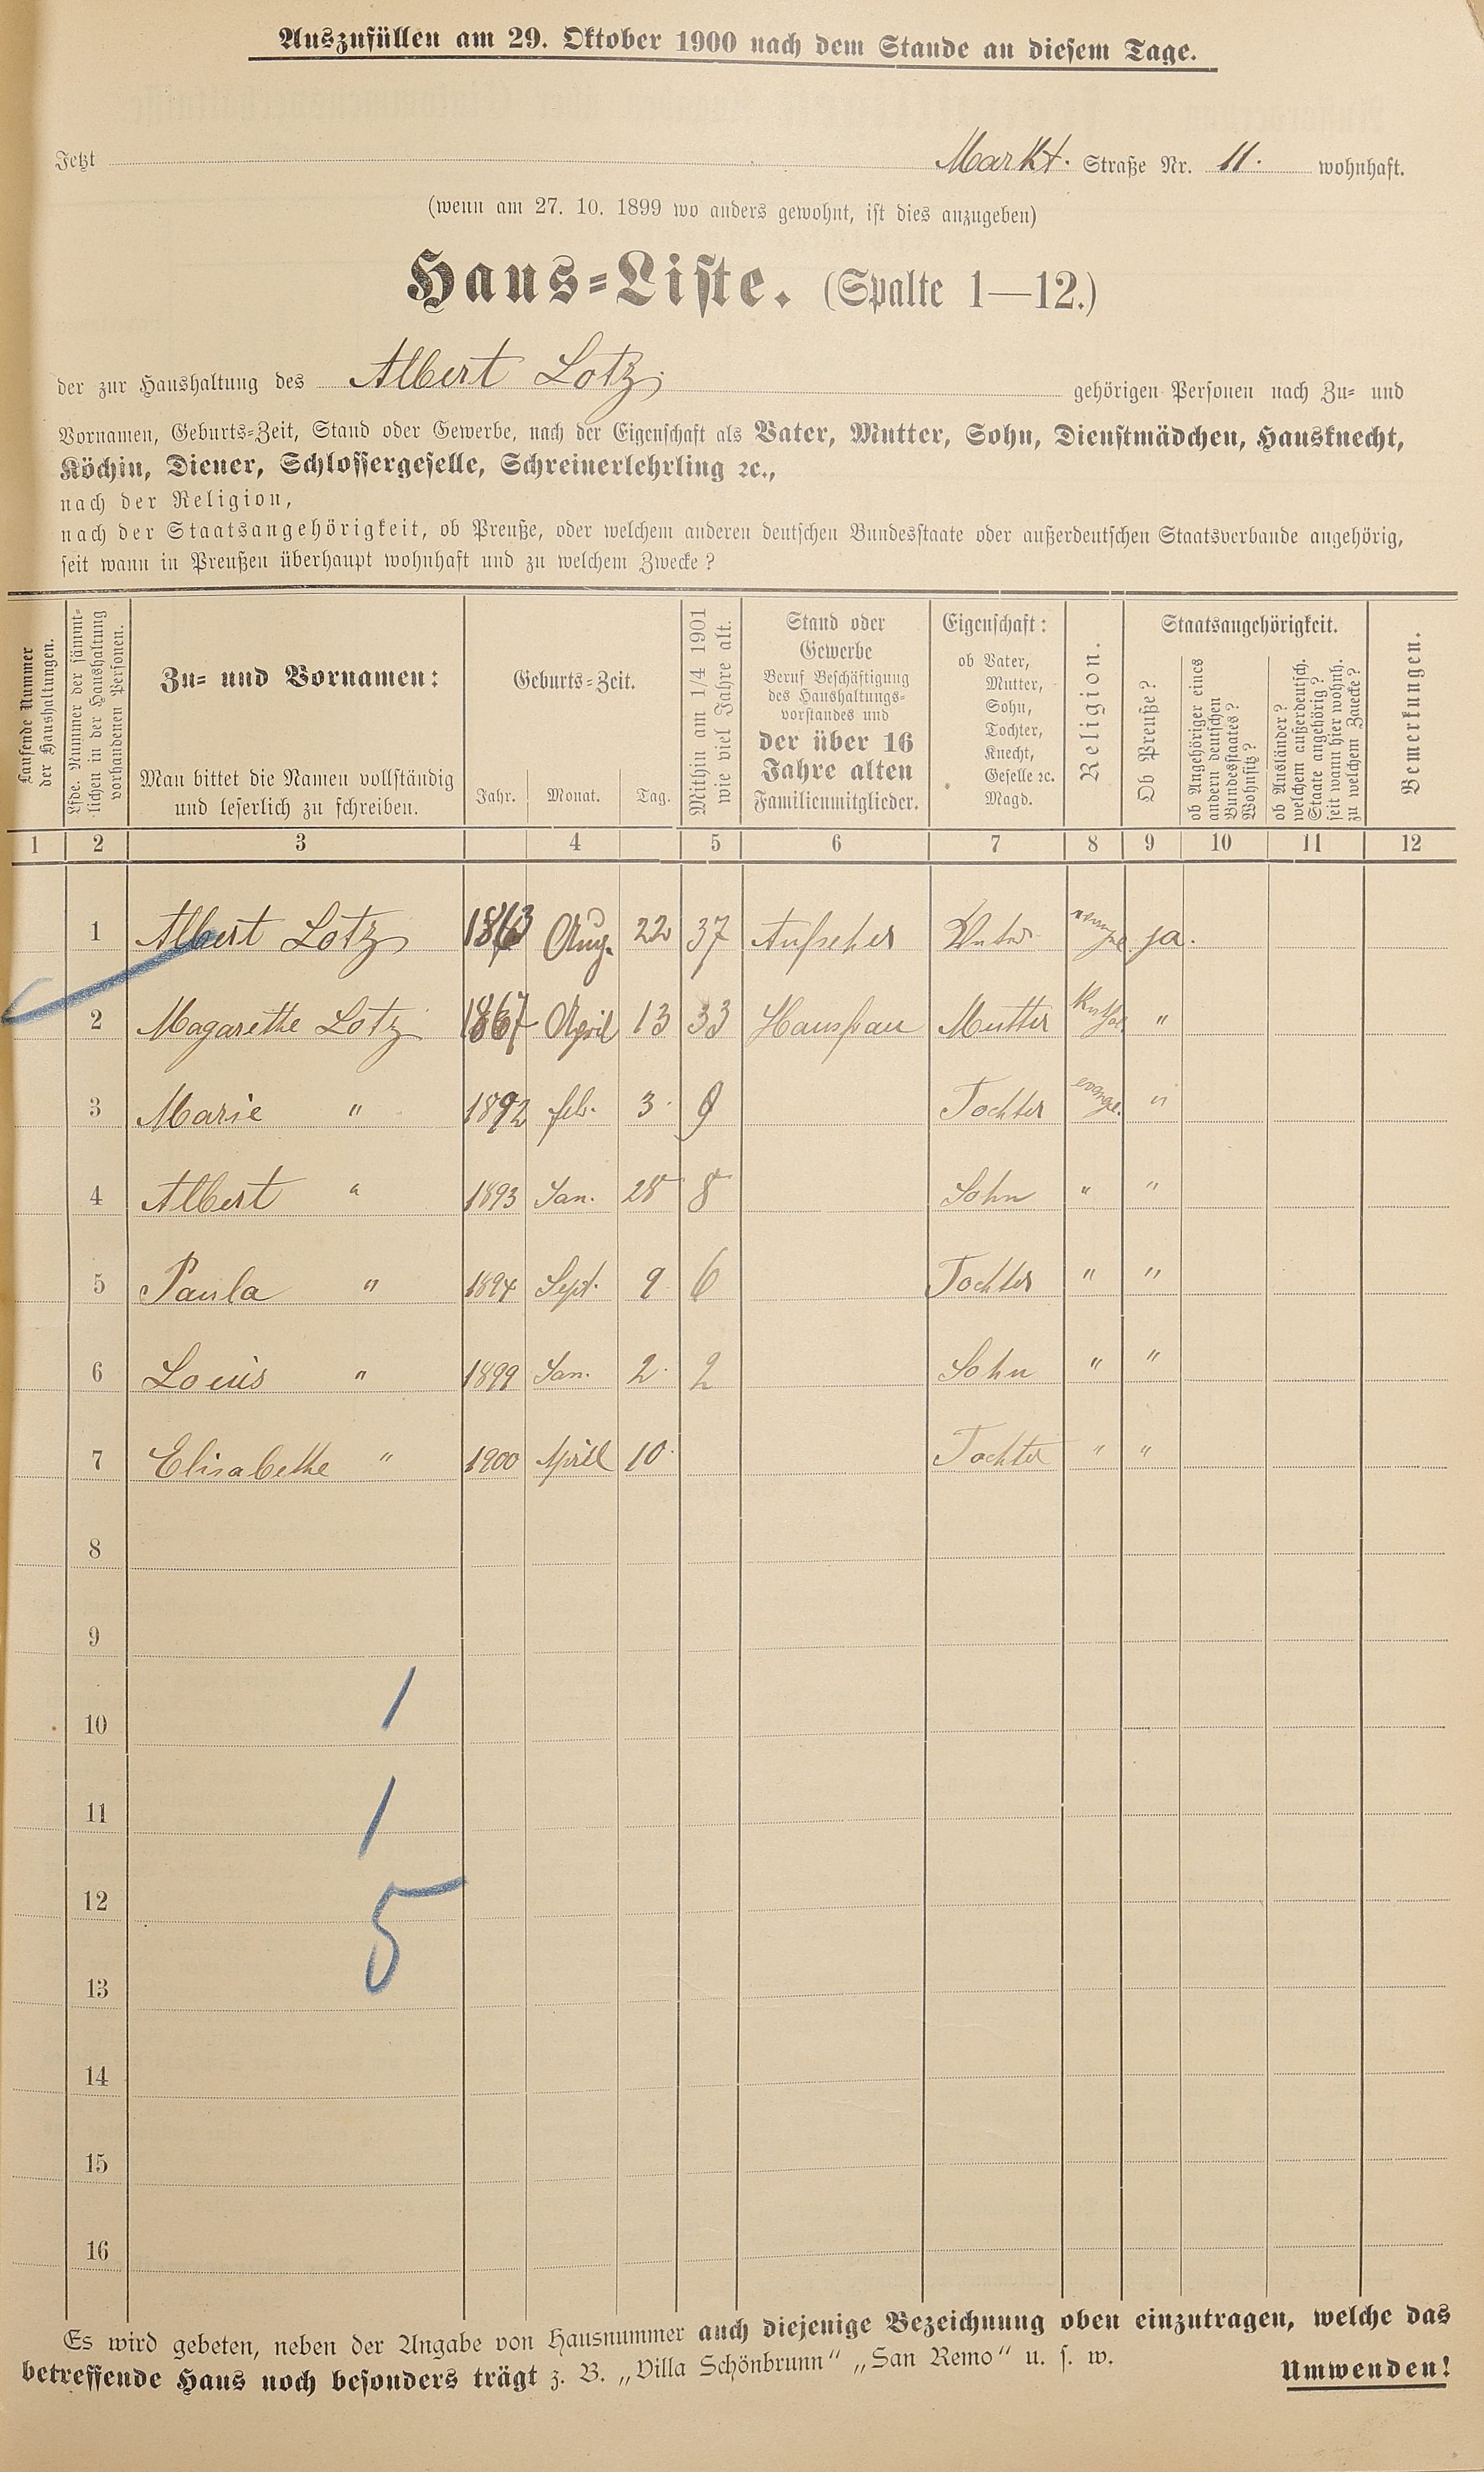 Auszufüllen am 29. Oktober 1900 nach dem Stande an diesem Tage.
Jetzt Markt. Straße Nr. 11. wohnhaft.
(wenn am 27. 10. 1899 wo anders gewohnt, ist dies anzugeben)
Haus-Liste. (Spalte 1—12.)
der zur Haushaltung des Albert Lotz gehörigen Personen nach Zu- und
Vornamen, Geburts-Zeit, Stand oder Gewerbe, nach der Eigenschaft als Vater, Mutter, Sohn, Dienstmädchen, Hausknecht,
Köchin, Diener, Schlossergeselle, Schreinerlehrling ꝛc.,
nach der Religion,
nach der Staatsangehörigkeit, ob Preuße, oder welchem anderen deutschen Bundesstaate oder außerdeutschen Staatsverbande angehörig,
seit wann in Preußen überhaupt wohnhaft und zu welchem Zwecke?
Laufende Nummer
der Haushaltungen.
Lfde. Nummer der sämmt-
lichen in der Haushaltung
vorhandenen Personen.
Zu- und Vornamen:
Man bittet die Namen vollständig
und leserlich zu schreiben.
Geburts-Zeit.
Jahr. Monat. Tag.
Mithin am 1/4 1901
wie viel Jahre alt.
Stand oder
Gewerbe
Beruf Beschäftigung
des Haushaltungs-
vorstandes und
der über 16
Jahre alten
Familienmitglieder.
Eigenschaft:
ob Vater,
Mutter,
Sohn,
Tochter,
Knecht,
Geselle ꝛc.
Magd.
Religion.
Staatsangehörigkeit.
Ob Preuße?
ob Angehöriger eines
andern deutschen
Bundesstaates?
Wohnsitz?
ob Ausländer?
welchem außerdeutsch.
Staate angehörig?
seit wann hier wohnh.
zu welchem Zwecke?
Bemerkungen.
1 2 3 4 5 6 7 8 9 10 11 12
1 Albert Lotz 1863 Aug. 22 37 Aufseher Vater ja.
2 Magarethe Lotz 1867 April 13 33 Hausfrau Mutter Kathol. "
3 Marie " 1892 feb. 3. 9 Tochter evange. "
4 Albert " 1893 Jan. 28 8 Sohn " "
5 Paula " 1894 Sept. 9. 6 Tochter " "
6 Louis " 1899 Jan. 2. 2 Sohn " "
7 Elisabethe " 1900 Aprill 10. Tochter " "
8
9
10 1
11 1
12 5
13
14
15
16
Es wird gebeten, neben der Angabe von Hausnummer auch diejenige Bezeichnung oben einzutragen, welche das
betreffende Haus noch besonders trägt z. B. „Villa Schönbrunn" „San Remo" u. s. w.
Umwenden!